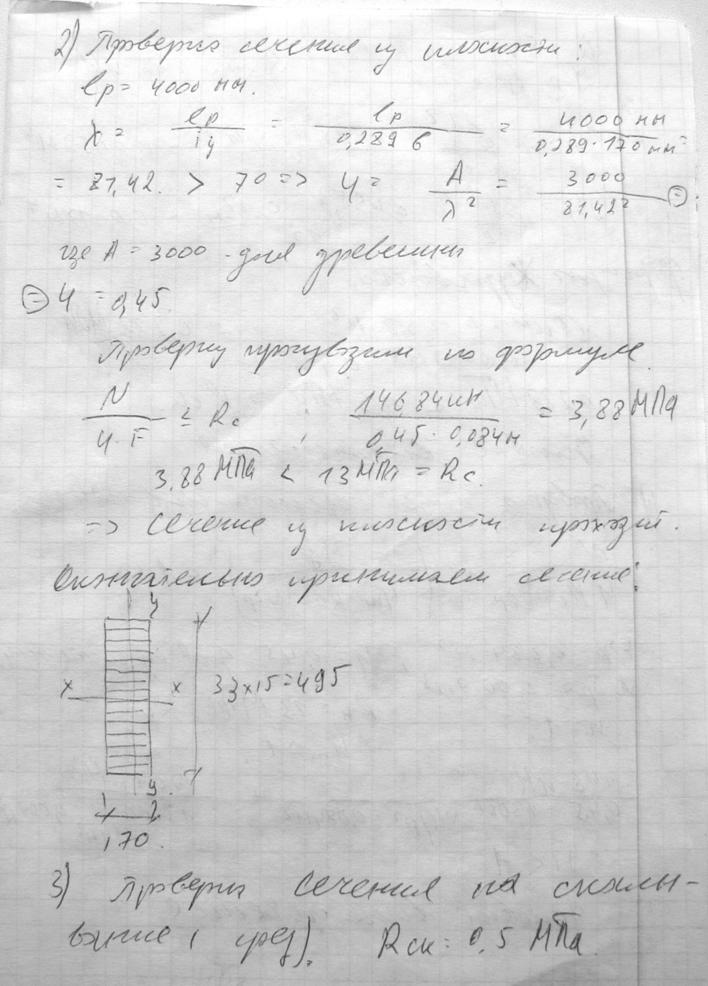 2) Проверка сечения из плоскости:
lр = 4000 мм.
λ = lр/iy = lр/0,289 b = 4000 мм/0,289·170 мм
= 81,42. > 70 => φ = A/λ² = 3000/81,42² =
где A = 3000 - для древесины
= φ = 0,45.
Проверку производим по формуле
N/φ·F ≤ Rc ; 146,84 кН/0,45·0,084 м = 3,88 МПа
3,88 МПа < 13 МПа = Rc.
=> Сечение из плоскости проходит.
Окончательно принимаем сечение:
y
x x 33x15=495
y
170.
3) Проверка сечения на скалы-
вание (срез). Rск = 0,5 МПа.